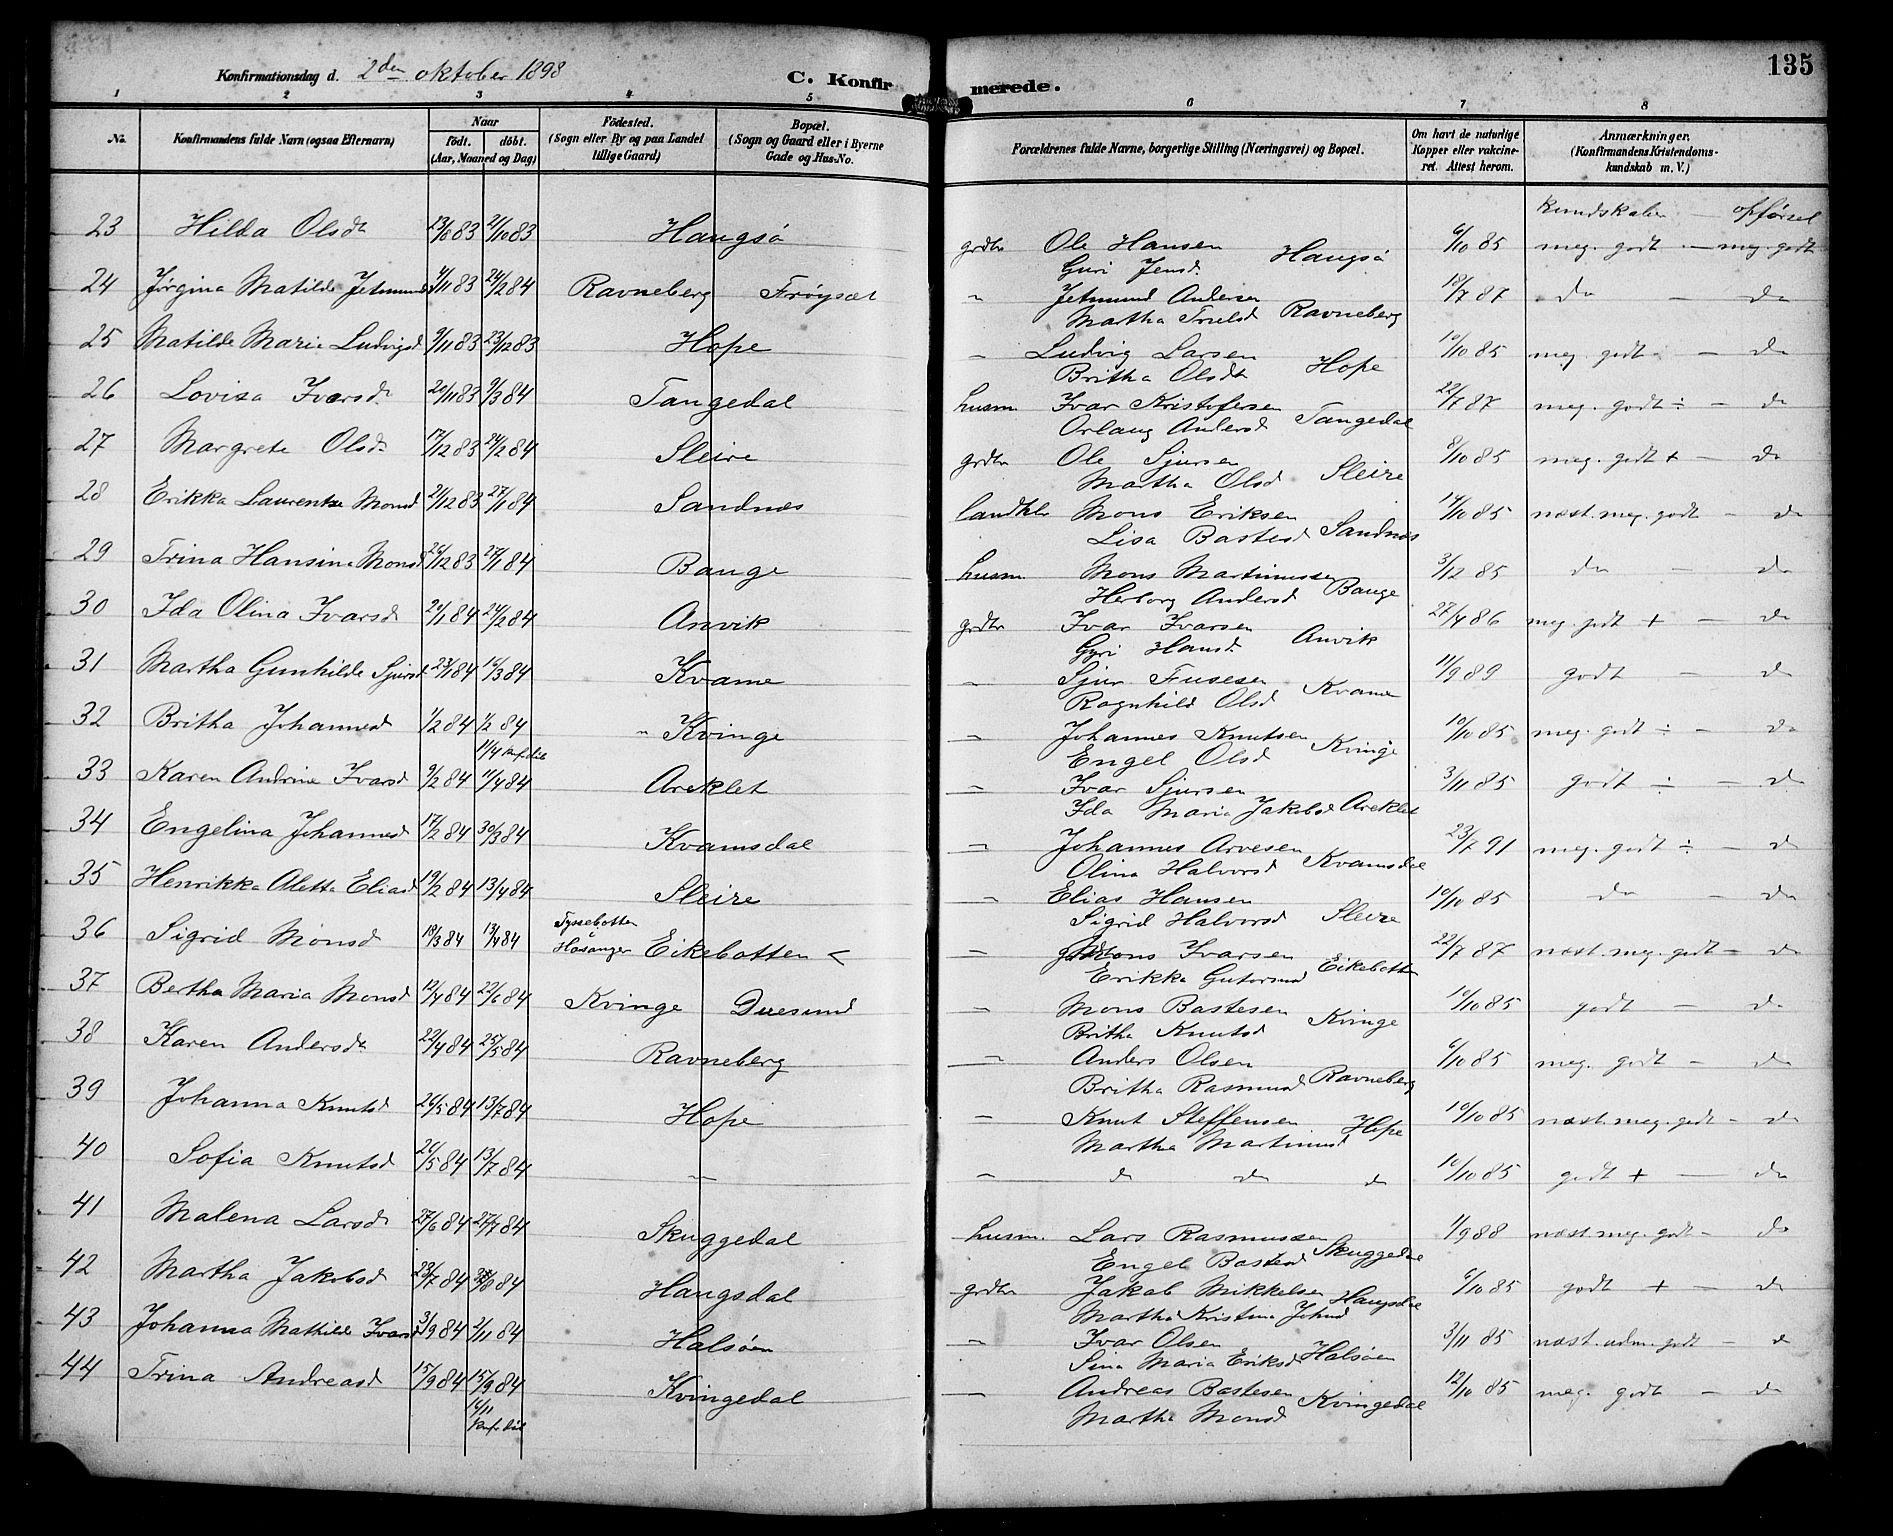 135
Konfirmationsdag d. 2den oktober 1898 C. Konfirmerede.
1 2 3 4 5 6 7 8
No. Konfirmandens fulde Navn (ogsaa Efternavn) Naar født. døbt. (Aar, Maaned og Dag) Fødested. (Sogn eller By og paa Landet tillige Gaard) Bopæl. (Sogn og Gaard eller i Byerne Gade og Hus-No. Forældrenes fulde Navne, borgerlige Stilling (Næringsvei) og Bopæl. Om havt de naturlige Kopper eller vakcineret. Attest herom. Anmærkninger. (Konfirmandens Kristendomskundskab m. V.)
kundskaber — opførsel
23 Hilda Olsdt 13/10 83 21/10 83 Haugsø grdbr Ole Hansen Haugsø 6/10 85 meg. godt — meg. godt
Guri Jensd.
24 Jørgina Matilde Jetmunds 1/11 83 24/2 84 Ravneberg Frøyset " Jetmund Andersen 18/7 87 do — do
Martha Trulsd Ravneberg
25 Matilde Marie Ludvigsd 9/11 83 23/12 83 Hope " Ludvig Larsen 10/10 85 meg. godt — do
Britha Olsdt Hope
26 Lovisa Ivarsd 20/11 83 9/3 84 Tangedal husm Ivar Kristofersen 22/7 87 meg. godt ÷ — do
Orlaug Andersd Tangedal
27 Margrete Olsd 17/12 83 24/2 84 Sleire grdbr Ole Sjursen 8/10 85 meg. godt + — do
Martha Olsd Sleire
28 Erikka Laurentse Monsd 21/12 83 27/1 84 Sandnæs landhdlr Mons Eriksen 14/10 85 næst. meg. godt — do
Lisa Bastesd Sandnæs
29 Trina Hansine Monsd 26/12 83 27/1 84 Bauge husm Mons Martinussen 3/12 85 do — do
Herborg Andersd Bauge
30 Ida Olina Ivarsd 21/1 84 24/2 84 Anvik grdbr Ivar Ivarsen 27/4 86 meg. godt + — do
Gyri Hansd Anvik
31 Martha Gunhilde Sjursd 23/1 84 16/3 84 Kvame " Sjur Fusesen 11/9 89 godt — do
Ragnhild Olsd Kvame
32 Britha Johannesd 1/2 84 1/2 84 Kvinge " Johannes Knutsen 10/10 85 meg. godt ÷ — do
11/4 Engel Olsd Kvinge
33 Karen Andrine Ivarsd 9/2 84 11/4 84 Areklet " Ivar Sjursen 3/11 85 godt ÷ — do
Ida Maria Jakobsd Areklet
34 Engelina Johannesd 17/2 84 30/3 84 Kvamsdal " Johannes Arvesen 23/7 91 meg. godt ÷ — do
Olina Halvorsd Kvamsdal
35 Henrikka Aletta Eliasd 19/2 84 13/4 84 Sleire " Elias Hansen 10/10 85 do — do
Sigrid Halvorsd Sleire
36 Sigrid Monsd 18/3 84 13/4 84 Tyssebotten i Hosanger Eikebotten " Mons Ivarsen 22/7 87 næst. meg. godt — do
Erikka Gutormsd Eikebotten
37 Bertha Maria Monsd 12/4 84 22/6 84 Kvinge Duesund " Mons Bastesen 10/10 85 godt — do
Britha Knutsd Kvinge
38 Karen Andersdt 22/4 84 25/5 84 Ravneberg " Anders Olsen 6/10 85 meg. godt — do
Britha Rasmusd Ravneberg
39 Johanna Knutsd 26/5 84 13/7 84 Hope " Knut Steffensen 10/10 85 næst. meg. godt — do
Martha Martinusd Hope
40 Sofia Knutsd 26/5 84 13/7 84 " " do do do 10/10 85 godt + — do
41 Malena Larsd 27/6 84 27/7 84 Skuggedal husm. Lars Rasmussen 1/9 88 næst meg. godt — do
Engel Bastesd Skuggedal
42 Martha Jakobsd 23/7 84 /8 84 Haugsdal grdbr Jakob Mikkelsen Haugsdal 6/10 85 godt + — do
Martha Kristina Johnsd
43 Johanna Mathilde Ivarsd 3/9 84 2/11 84 Halsøen " Ivar Olsen 3/11 85 næst. udm. godt — do
Sina Maria Eriksd Halsøen
44 Trina Andreasd 15/9 84 15/9 84 Kvingedal " Andreas Bastesen Kvingedal 12/10 85 meg. godt — do
16/11 Martha Monsd